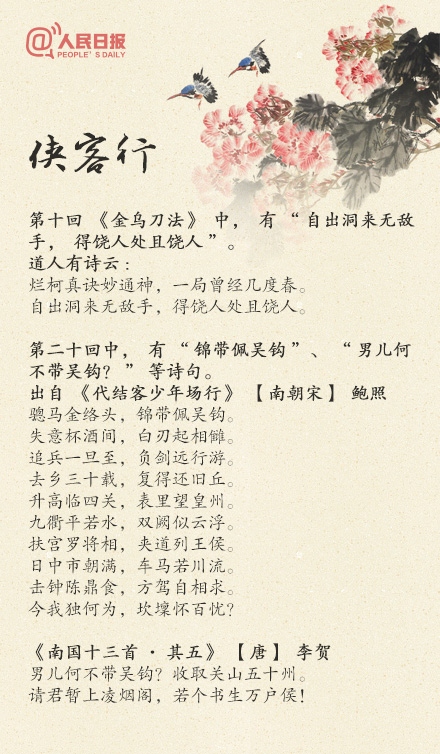 @人民日报
PEOPLE'S DAILY
侠客行
第十回《金乌刀法》中，有“自出洞来无敌
手，得饶人处且饶人”。
道人有诗云：
烂柯真诀妙通神，一局曾经几度春。
自出洞来无敌手，得饶人处且饶人。
第二十回中，有“锦带佩吴钩”、“男儿何
不带吴钩？”等诗句。
出自《代结客少年场行》【南朝宋】鲍照
骢马金络头，锦带佩吴钩。
失意杯酒间，白刃起相雠。
追兵一旦至，负剑远行游。
去乡三十载，复得还旧丘。
升高临四关，表里望皇州。
九衢平若水，双阙似云浮。
扶宫罗将相，夹道列王侯。
日中市朝满，车马若川流。
击钟陈鼎食，方驾自相求。
今我独何为，坎壈怀百忧？
《南国十三首·其五》【唐】李贺
男儿何不带吴钩？收取关山五十州。
请君暂上凌烟阁，若个书生万户侯！